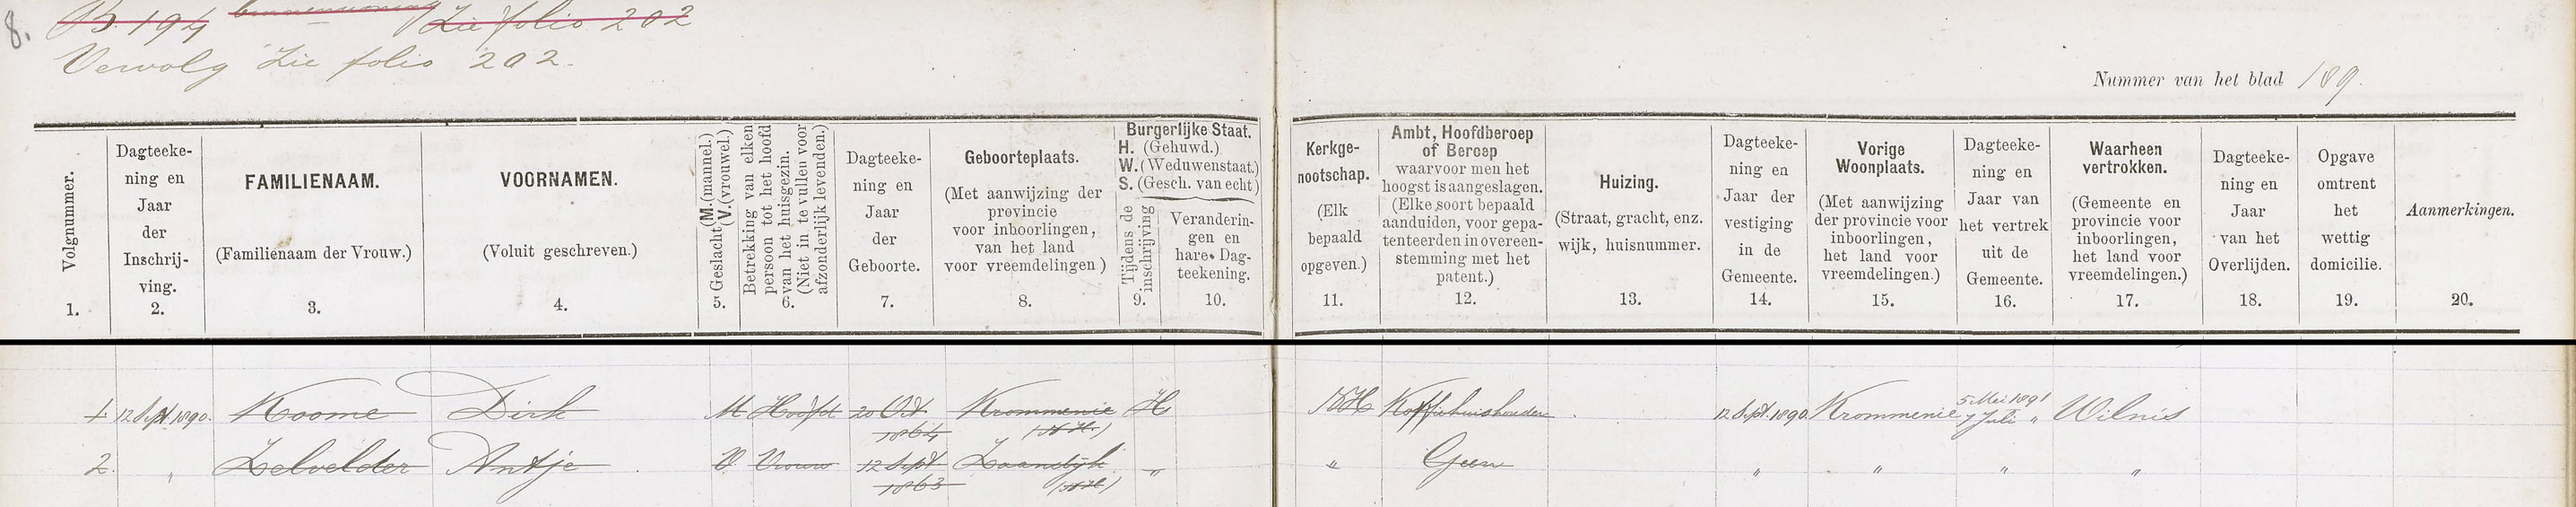 8.
B. 194 Zie folio 202
Vervolg Zie folio 202.
Nummer van het blad 189.
Volgnummer.
1.
Dagteeke-
ning en
Jaar
der
Inschrij-
ving.
2.
FAMILIENAAM.
(Familienaam der Vrouw.)
3.
VOORNAMEN.
(Voluit geschreven.)
4.
Geslacht (M. (mannel.)
(V. (vrouwel.)
5.
Betrekking van elken
persoon tot het hoofd
van het huisgezin.
(Niet in te vullen voor
afzonderlijk levenden.)
6.
Dagteeke-
ning en
Jaar
der
Geboorte.
7.
Geboorteplaats.
(Met aanwijzing der
provincie
voor inboorlingen,
van het land
voor vreemdelingen)
8.
Burgerlijke Staat.
H. (Gehuwd.)
W. (Weduwenstaat.)
S. (Gesch. van echt)
Tijdens de
inschrijving
9.
Veranderin-
gen en
hare Dag-
teekening.
10.
Kerkge-
nootschap.
(Elk
bepaald
opgeven.)
11.
Ambt, Hoofdberoep
of Beroep
waarvoor men het
hoogst is aangeslagen.
(Elke soort bepaald
aanduiden, voor gepa-
tenteerden in overeen-
stemming met het
patent.)
12.
Huizing.
(Straat, gracht, enz.
wijk, huisnummer.
13.
Dagteeke-
ning en
Jaar der
vestiging
in de
Gemeente.
14.
Vorige
Woonplaats.
(Met aanwijzing
der provincie voor
inboorlingen,
het land voor
vreemdelingen.)
15.
Dagteeke-
ning en
Jaar van
het vertrek
uit de
Gemeente.
16.
Waarheen
vertrokken.
(Gemeente en
provincie voor
inboorlingen,
het land voor
vreemdelingen.)
17.
Dagteeke-
ning en
Jaar
van het
Overlijden.
18.
Opgave
omtrent
het
wettig
domicilie.
19.
Aanmerkingen.
20.
1 12 Sept. 1890. Koome Dirk M Hoofd 20 Oct 1864 Krommenie (N.H.) H NH Koffiehuishouder 12 Sept. 1890. Krommenie 5 Mei 1891 7 Juli " Wilnis
2. " Zelvelder Antje V Vrouw 12 Sept 1863 Zaandijk (N.H.) " " Geen " " " "